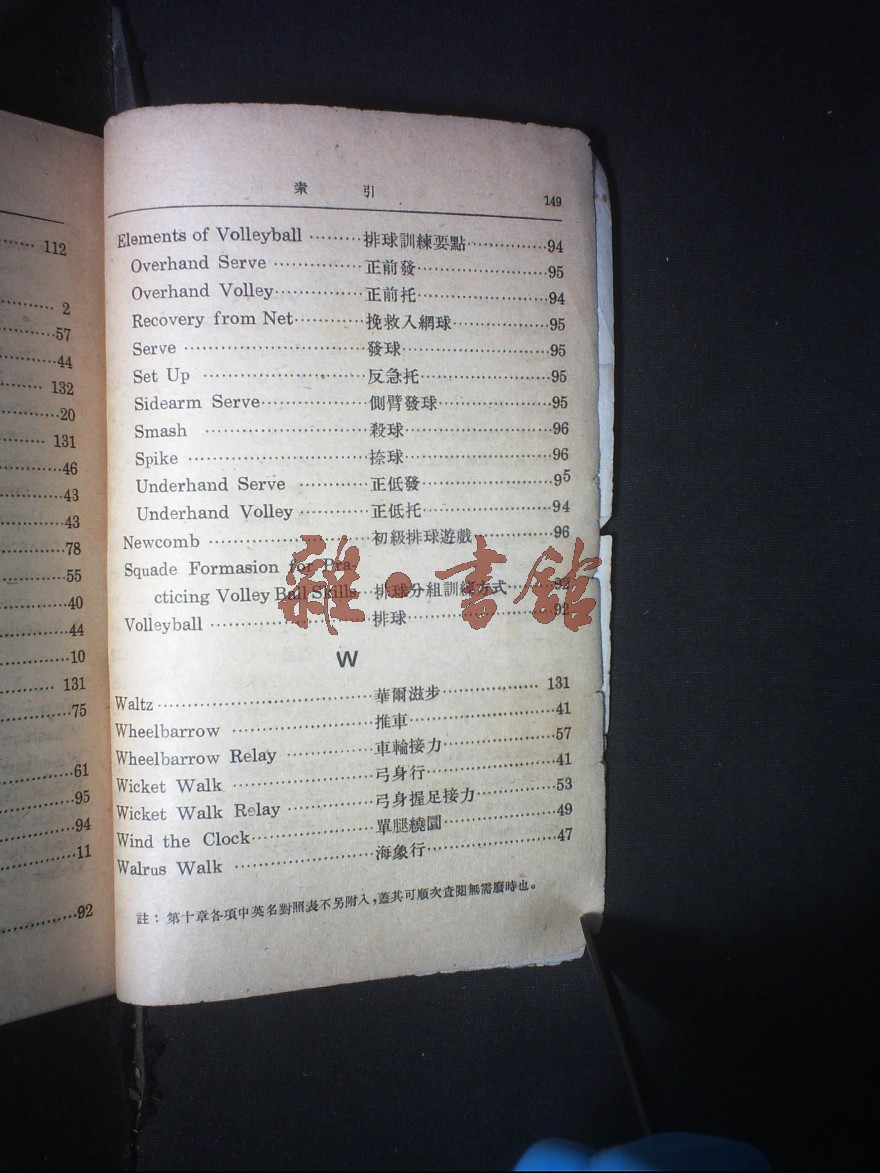 112
2
57
44
132
20
131
46
43
43
78
55
40
44
10
131
75
61
95
94
11
92
索 引 149
Elements of Volleyball ·········排球訓練要點·············94
Overhand Serve ···············正前發······················95
Overhand Volley···············正前托······················94
Recovery from Net············挽救入網球················95
Serve ······························發球·························95
Set Up ···························反急托······················95
Sidearm Serve··················側臂發球···················95
Smash ···························殺球·························96
Spike ······························捺球·························96
Underhand Serve ············正低發······················95
Underhand Volley ············正低托······················94
Newcomb ························初級排球遊戲·············96
Squade Formasion for Pra-
cticing Volley Ball Skills···排球分組訓練方式·······92
Volleyball ························排球·························92
W
Waltz ······························華爾滋步················ 131
Wheelbarrow ··················推車·························41
Wheelbarrow Relay ············車輪接力···················57
Wicket Walk ··················弓身行······················41
Wicket Walk Relay ············弓身握足接力·············53
Wind the Clock··················單腿繞圓···················49
Walrus Walk ··················海象行······················47
註：第十章各項中英名對照表不另附入，蓋其可順次查閱無需廢時也。
雜·書館